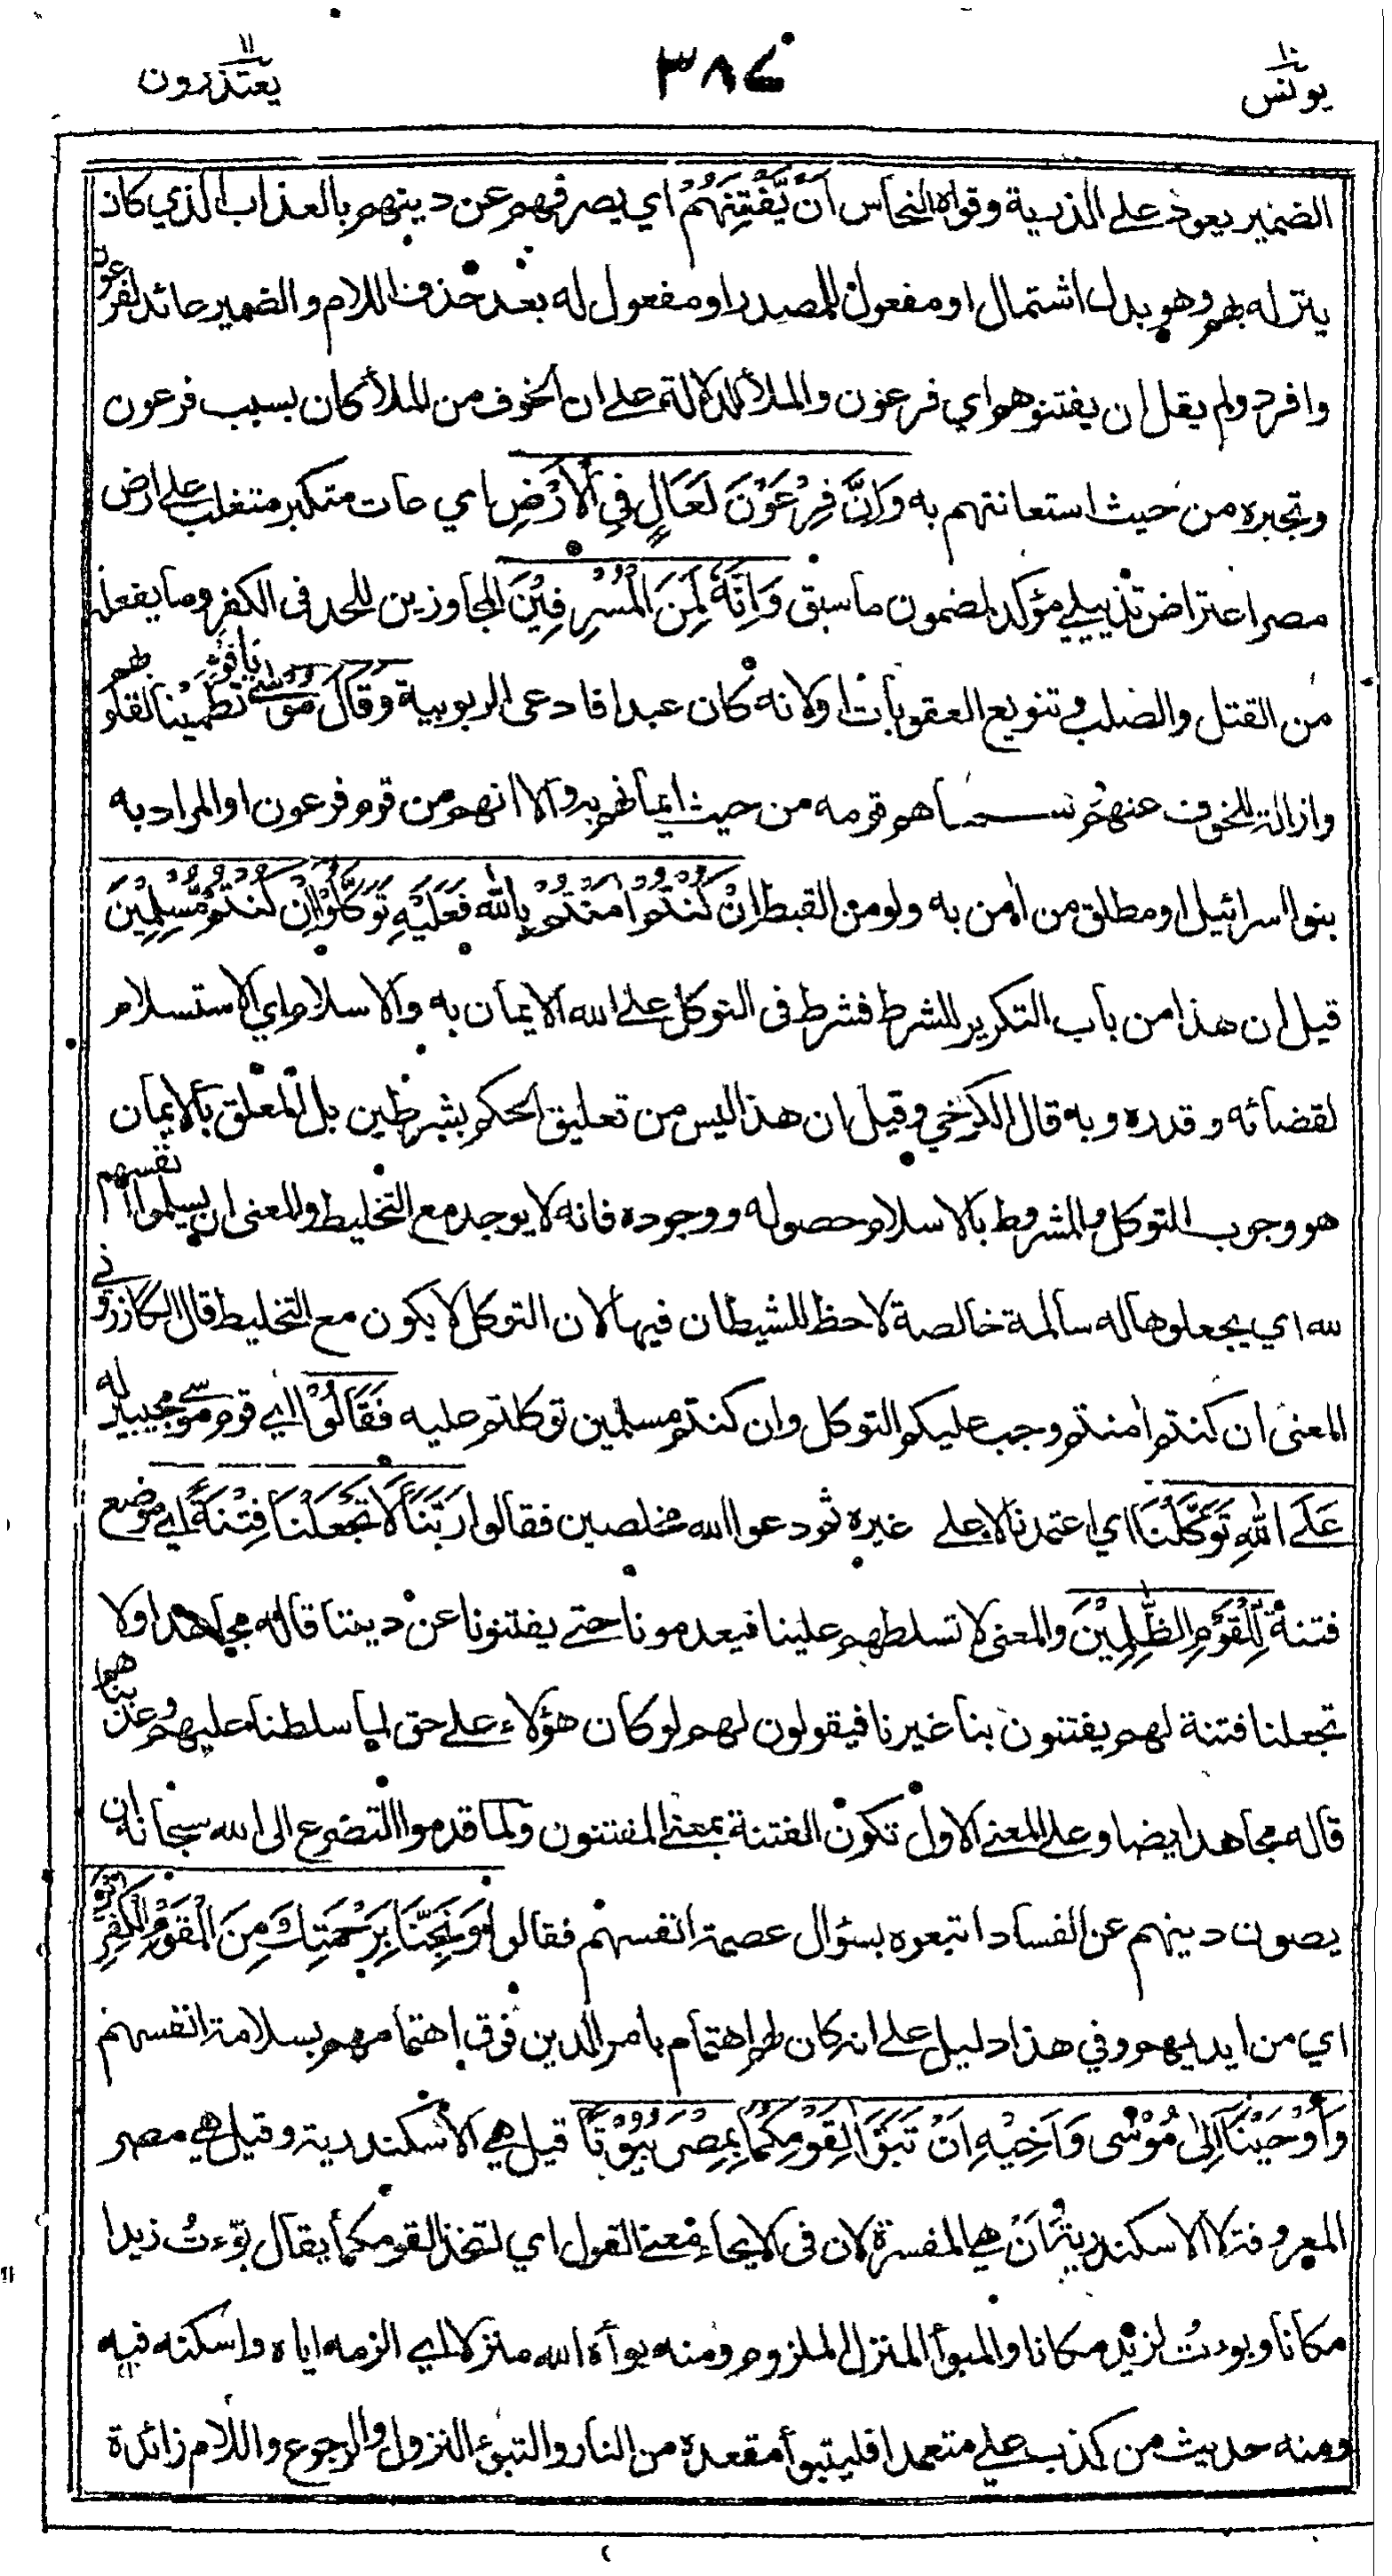 يونس ١٠
٣٨٤
يعتذرون ١١
الضمير يعود على الذرية وقواه النحاس اَنْ يَّفْتِنَهُمْ اي يصرفهم عن دينهم بالعذاب الذي كان
ينزله بهم وهو بدل اشتمال او مفعول للمصدر او مفعول له بعد حذف اللام والضمير عائد لفرعون
وافرد ولم يقل ان يفتنوهم اي فرعون والملأ للدلالة على ان الخوف من الملأ كان بسبب فرعون
وتجبره من حيث استعانتهم به وَاِنَّ فِرْعَوْنَ لَعَالٍ فِي الْاَرْضِ اي عات متكبر متغلب على ارض
مصر اعتراض تذييلي مؤكد لمضمون ما سبق وَاِنَّهٗ لَمِنَ الْمُسْرِفِيْنَ المجاوزين للحد في الكفر وما يفعله
من القتل والصلب في تنويع العقوبات او لانه كان عبدا فادعى الربوبية وَقَالَ مُوْسٰى تطمينا لقلوبهم
وازالة للخوف عنهم يَا قَوْمِ سماهم قومه من حيث ايمانهم به والا انهم من قوم فرعون او المراد به
بنو اسرائيل او مطلق من اٰمن به ولو من القبط اِنْ كُنْتُمْ اٰمَنْتُمْ بِاللّٰهِ فَعَلَيْهِ تَوَكَّلُوْا اِنْ كُنْتُمْ مُّسْلِمِيْنَ
قيل ان هذا من باب التكرير للشرط فشرط في التوكل على الله الايمان به والاسلام اي الاستسلام
لقضائه وقدره وبه قال الكرخي وقيل ان هذا ليس من تعليق الحكم بشرطين بل المعلق بالايمان
هو وجوب التوكل والمشروط بالاسلام حصوله ووجوده فانه لا يوجد مع التخليط والمعنى ان يسلموا انفسهم
لله اي يجعلوها له سالمة خالصة لا حظ للشيطان فيها لان التوكل لا يكون مع التخليط قال الكازروني
المعنى ان كنتم اٰمنتم وجب عليكم التوكل وان كنتم مسلمين توكلتم عليه فَقَالُوْا اي قوم موسى مجيبين له
عَلَى اللّٰهِ تَوَكَّلْنَا اي اعتمدنا لا على غيره ثم دعوا الله مخلصين فقالوا رَبَّنَا لَا تَجْعَلْنَا فِتْنَةً اي موضع
فتنة لِّلْقَوْمِ الظّٰلِمِيْنَ والمعنى لا تسلطهم علينا فيعدمونا حتى يفتنونا عن ديننا قاله مجاهد او لا
تجعلنا فتنة لهم يفتنون بنا غيرنا فيقولون لهم لو كان هؤلاء على حق لما سلطنا عليهم وعذبناهم
قاله مجاهد ايضا وعلى المعنى الاول تكون الفتنة بمعنى المفتون ولما قدموا التضرع الى الله سبحانه ان
يصون دينهم عن الفساد اتبعوه بسؤال عصمة انفسهم فقالوا وَنَجِّنَا بِرَحْمَتِكَ مِنَ الْقَوْمِ الْكٰفِرِيْنَ
اي من ايديهم وفي هذا دليل على انه كان لهم اهتمام بامر الدين فوق اهتمامهم بسلامة انفسهم
وَاَوْحَيْنَا اِلٰى مُوْسٰى وَاَخِيْهِ اَنْ تَبَوَّاٰ لِقَوْمِكُمَا بِمِصْرَ بُيُوْتًا قيل هي الاسكندرية وقيل هي مصر
المعروفة لا الاسكندرية واَنْ هي المفسرة لان في الايحاء معنى القول اي اتخذا لقومكما يقال بوّءتُ زيدا
مكانا وبوءت لزيد مكانا والمبوأ المنزل الملزوم ومنه بوأه الله منزلا اي الزمه اياه واسكنه فيه
ومنه حديث من كذب علي متعمدا فليتبوأ مقعده من النار والتبوّء النزول والرجوع واللام زائدة